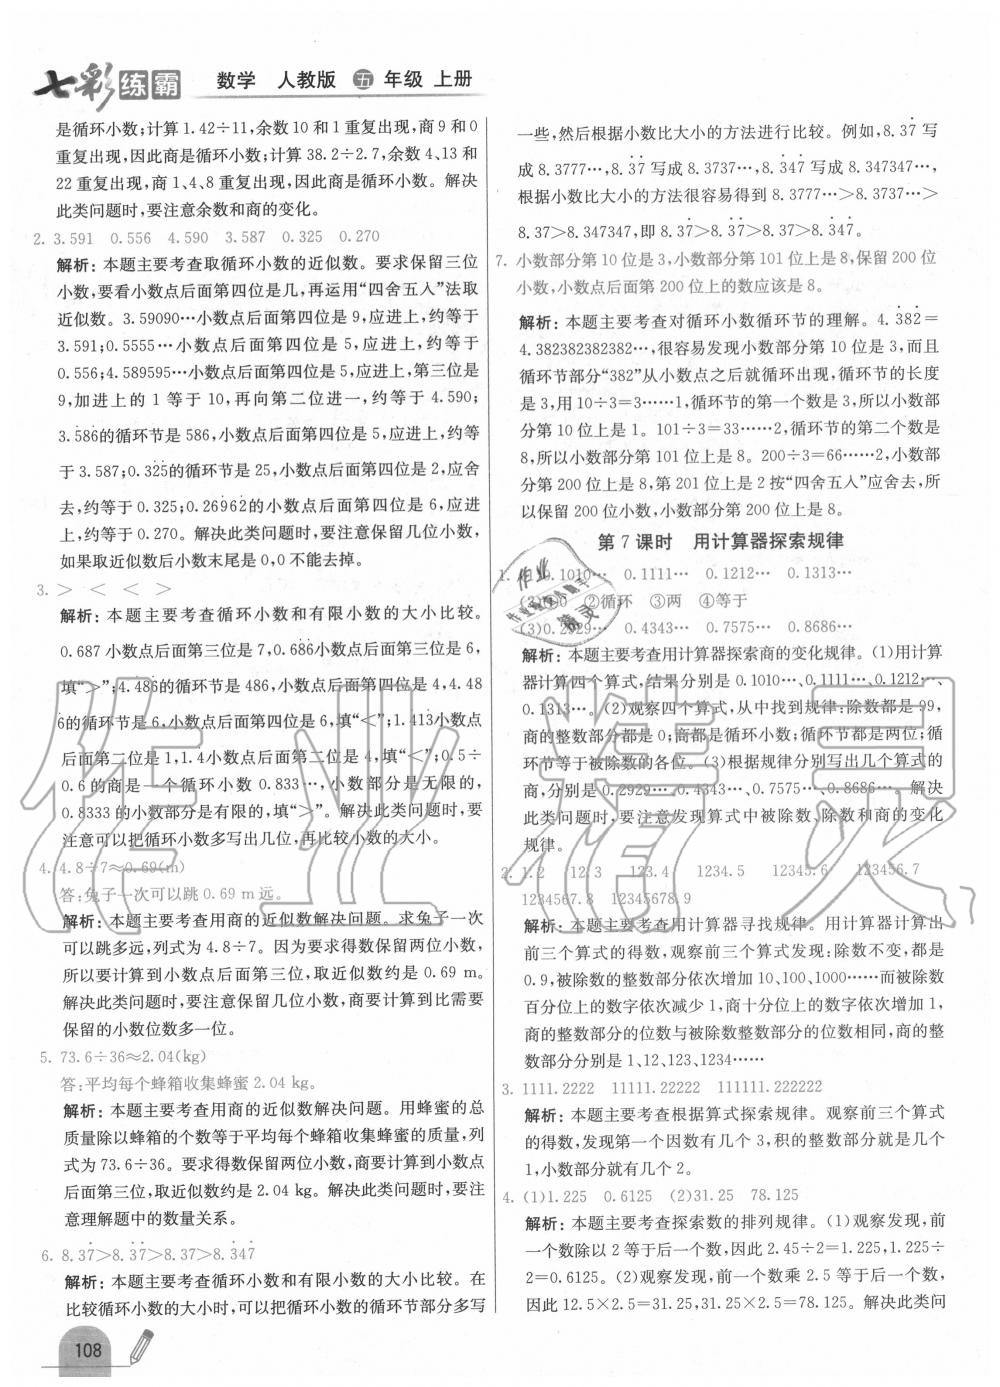 七彩练霸 数学 人教版 五 年级 上册
是循环小数;计算1.42÷11,余数10和1重复出现,商9和0
重复出现,因此商是循环小数;计算38.2÷2.7,余数4、13和
22重复出现,商1、4、8重复出现,因此商是循环小数。解决
此类问题时,要注意余数和商的变化。
2. 3.591 0.556 4.590 3.587 0.325 0.270
解析:本题主要考查取循环小数的近似数。要求保留三位
小数,要看小数点后面第四位是几,再运用“四舍五入”法取
近似数。3.59090…小数点后面第四位是9,应进上,约等于
3.591;0.5555…小数点后面第四位是5,应进上,约等于
0.556;4.589595…小数点后面第四位是5,应进上,第三位是
9,加进上的1等于10,再向第二位进一,约等于4.590;
3.5̇86̇的循环节是586,小数点后面第四位是5,应进上,约等
于3.587;0.32̇5̇的循环节是25,小数点后面第四位是2,应舍
去,约等于0.325;0.26̇962̇小数点后面第四位是6,应进
上,约等于0.270。解决此类问题时,要注意保留几位小数,
如果取近似数后小数末尾是0,0不能去掉。
3. > < < >
解析:本题主要考查循环小数和有限小数的大小比较。
0.687小数点后面第三位是7,0.686小数点后面第三位是6,
填“>”;4.4̇86̇的循环节是486,小数点后面第四位是4,4.48
6̇的循环节是6,小数点后面第四位是6,填“<”;1.4̇13̇小数点
后面第二位是1,1.4小数点后面第二位是4,填“<”;0.5÷
0.6的商是一个循环小数0.833…,小数部分是无限的,
0.8333的小数部分是有限的,填“>”。解决此类问题时,要
注意可以把循环小数多写出几位,再比较小数的大小。
4. 4.8÷7≈0.69(m)
答:兔子一次可以跳0.69 m远。
解析:本题主要考查用商的近似数解决问题。求兔子一次
可以跳多远,列式为4.8÷7。因为要求得数保留两位小数,
所以要计算到小数点后面第三位,取近似数约是0.69 m。
解决此类问题时,要注意保留几位小数,商要计算到比需要
保留的小数位数多一位。
5. 73.6÷36≈2.04(kg)
答:平均每个蜂箱收集蜂蜜2.04 kg。
解析:本题主要考查用商的近似数解决问题。用蜂蜜的总
质量除以蜂箱的个数等于平均每个蜂箱收集蜂蜜的质量,列
式为73.6÷36。要求得数保留两位小数,商要计算到小数点
后面第三位,取近似数约是2.04 kg。解决此类问题时,要注
意理解题中的数量关系。
6. 8.37̇>8.3̇7̇>8.37>8.3̇47̇
解析:本题主要考查循环小数和有限小数的大小比较。在
比较循环小数的大小时,可以把循环小数的循环节部分多写
108
一些,然后根据小数比大小的方法进行比较。例如,8.37̇写
成8.3777…,8.3̇7̇写成8.3737…,8.3̇47̇写成8.347347…,
根据小数比大小的方法很容易得到8.3777…>8.3737…>
8.37>8.347347,即8.37̇>8.3̇7̇>8.37>8.3̇47̇。
7. 小数部分第10位是3,小数部分第101位上是8,保留200位
小数,小数点后面第200位上的数应该是8。
解析:本题主要考查对循环小数循环节的理解。4.3̇82̇=
4.382382382382…,很容易发现小数部分第10位是3,而且
循环节部分“382”从小数点之后就循环出现,循环节的长度
是3,用10÷3=3……1,循环节的第一个数是3,所以小数部
分第10位上是1。101÷3=33……2,循环节的第二个数是
8,所以小数部分第101位上是8。200÷3=66……2,小数部
分第200位上是8,第201位上是2按“四舍五入”应舍去,所
以保留200位小数,小数部分第200位上是8。
第7课时 用计算器探索规律
1. 0.1010… 0.1111… 0.1212… 0.1313…
②循环 ③两 ④等于
(3)0.2929… 0.4343… 0.7575… 0.8686…
解析:本题主要考查用计算器探索商的变化规律。(1)用计算
器计算四个算式,结果分别是0.1010…、0.1111…、0.1212…、
0.1313…。(2)观察四个算式,从中找到规律:除数都是99,
商的整数部分都是0;商都是循环小数;循环节都是两位;循
环节等于被除数的各位。(3)根据规律分别写出几个算式的
商,分别是0.2929…、0.4343…、0.7575…、0.8686…。解决
此类问题时,要注意发现算式中被除数、除数和商的变化
规律。
2. 1.2 12.3 123.4 1234.5 12345.6 123456.7
1234567.8 12345678.9
解析:本题主要考查用计算器寻找规律。用计算器计算出
前三个算式的得数,观察前三个算式发现:除数不变,都是
0.9,被除数的整数部分依次增加10、100、1000……而被除数
百分位上的数字依次减少1,商十分位上的数字依次增加1,
商的整数部分的位数与被除数整数部分的位数相同,商的整
数部分分别是1、12、123、1234……
3. 1111.2222 11111.22222 111111.222222
解析:本题主要考查根据算式探索规律。观察前三个算式
的得数,发现第一个因数有几个3,积的整数部分就是几个
1,小数部分就有几个2。
4. (1)1.225 0.6125 (2)31.25 78.125
解析:本题主要考查探索数的排列规律。(1)观察发现,前
一个数除以2等于后一个数,因此2.45÷2=1.225,1.225÷
2=0.6125。(2)观察发现,前一个数乘2.5等于后一个数,
因此12.5×2.5=31.25,31.25×2.5=78.125。解决此类问
作业精灵